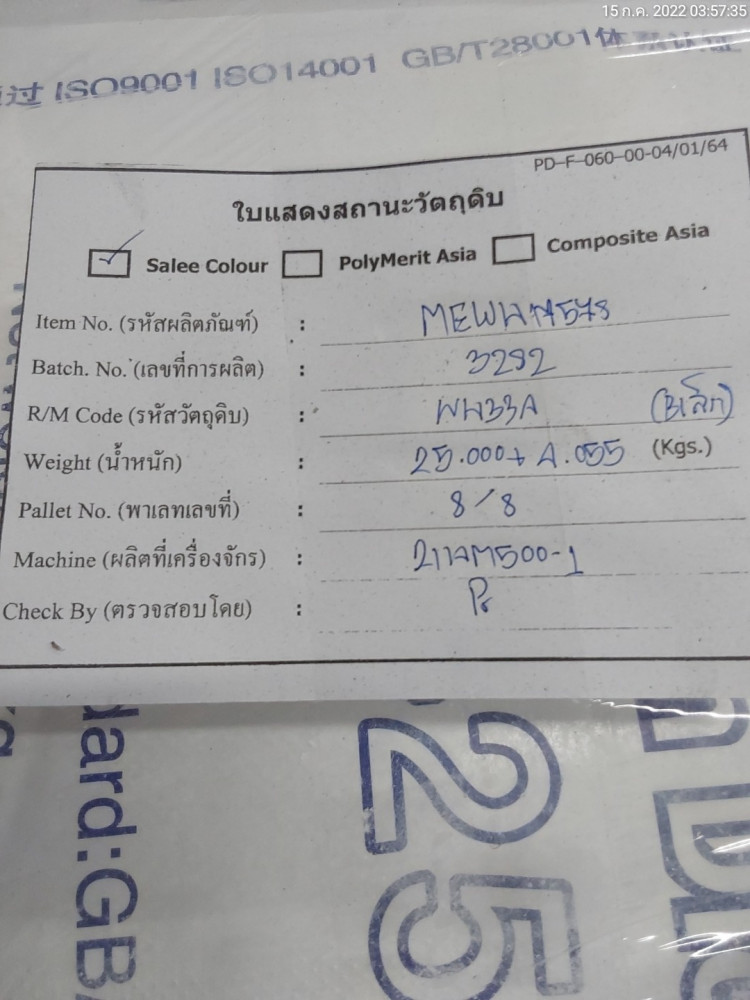 15 ก.ค. 2022 03:57:35
过 ISO9001 ISO14001 GB/T28001体系认证
PD-F-060-00-04/01/64
ใบแสดงสถานะวัตถุดิบ
Salee Colour PolyMerit Asia Composite Asia
Item No. (รหัสผลิตภัณฑ์) :
Batch. No. (เลขที่การผลิต) : 3292
R/M Code (รหัสวัตถุดิบ) : WH33A
Weight (น้ำหนัก) : 25.000+ 4.055 (Kgs.)
Pallet No. (พาเลทเลขที่) : 8/8
Machine (ผลิตที่เครื่องจักร) :
Check By (ตรวจสอบโดย) :
dard:GB
25